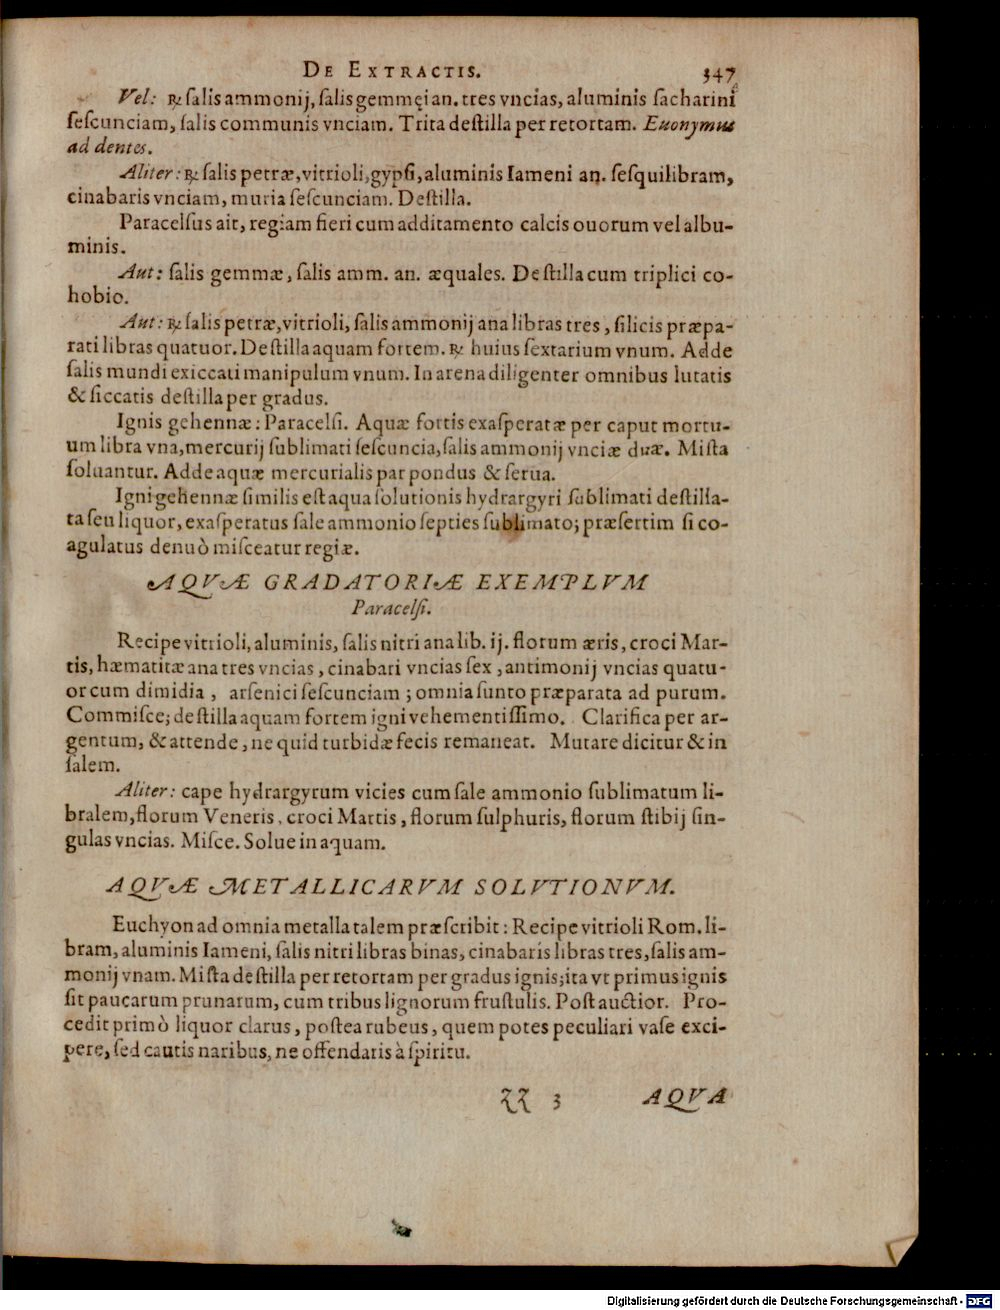 DE EXTRACTIS. 347
Vel: ℞ ſalis ammonij, ſalis gemmęi an. tres vncias, aluminis ſacharini
ſeſcunciam, ſalis communis vnciam. Trita deſtilla per retortam. Euonymus
ad dentes.
Aliter: ℞ ſalis petræ, vitrioli, gypſi, aluminis Iameni an. ſeſquilibram,
cinabaris vnciam, muria ſeſcunciam. Deſtilla.
Paracelſus ait, regiam fieri cum additamento calcis ouorum vel albu-
minis.
Aut: ſalis gemmæ, ſalis amm. an. æquales. Deſtilla cum triplici co-
hobio.
Aut: ℞ ſalis petræ, vitrioli, ſalis ammonij ana libras tres, ſilicis præpa-
rati libras quatuor. Deſtilla aquam fortem. ℞ huius ſextarium vnum. Adde
ſalis mundi exiccati manipulum vnum. In arena diligenter omnibus lutatis
& ſiccatis deſtilla per gradus.
Ignis gehennæ: Paracelſi. Aquæ fortis exaſperatæ per caput mortu-
um libra vna, mercurij ſublimati ſeſcuncia, ſalis ammonij vnciæ duæ. Miſta
ſoluantur. Adde aquæ mercurialis par pondus & ſerua.
Igni gehennæ ſimilis eſt aqua ſolutionis hydrargyri ſublimati deſtilla-
ta ſeu liquor, exaſperatus ſale ammonio ſepties ſublimato; præſertim ſi co-
agulatus denuò miſceatur regiæ.
AQVÆ GRADATORIÆ EXEMPLVM
Paracelſi.
Recipe vitrioli, aluminis, ſalis nitri ana lib. ij. florum æris, croci Mar-
tis, hæmatitæ ana tres vncias, cinabari vncias ſex, antimonij vncias quatu-
or cum dimidia, arſenici ſeſcunciam; omnia ſunto præparata ad purum.
Commiſce; deſtilla aquam fortem igni vehementiſſimo. Clarifica per ar-
gentum, & attende, ne quid turbidæ fecis remaneat. Mutare dicitur & in
ſalem.
Aliter: cape hydrargyrum vicies cum ſale ammonio ſublimatum li-
bralem, florum Veneris, croci Martis, florum ſulphuris, florum ſtibij ſin-
gulas vncias. Miſce. Solue in aquam.
AQVÆ METALLICARVM SOLVTIONVM.
Euchyon ad omnia metalla talem præſcribit: Recipe vitrioli Rom. li-
bram, aluminis Iameni, ſalis nitri libras binas, cinabaris libras tres, ſalis am-
monij vnam. Miſta deſtilla per retortam per gradus ignis; ita vt primus ignis
ſit paucarum prunarum, cum tribus lignorum fruſtulis. Poſt auctior. Pro-
cedit primò liquor clarus, poſtea rubeus, quem potes peculiari vaſe exci-
pere, ſed cautis naribus, ne offendaris à ſpiritu.
ZZ 3 AQVA
Digitalisierung gefördert durch die Deutsche Forschungsgemeinschaft - DFG